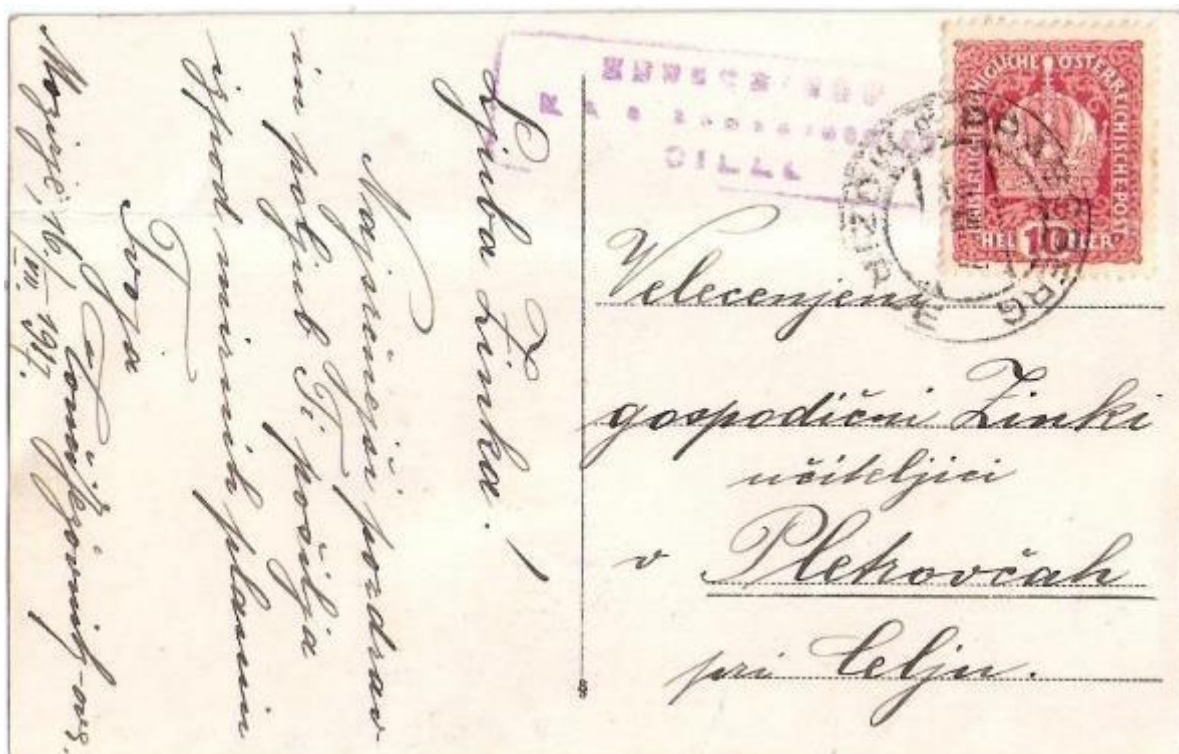 Ljuba Zinka!
Najsrčnejši pozdrav
in poljub Ti pošilja
izpod mirnih planin
Tvoja
Mozirje, 16./VII. 1917.
CILLI
KAISERLICHE KÖNIGLICHE ÖSTERREICHISCHE POST
HELLER 10 HELLER
Velecenjena
gospodični Zinki
učiteljici
v Pletrovčah
pri Celju.